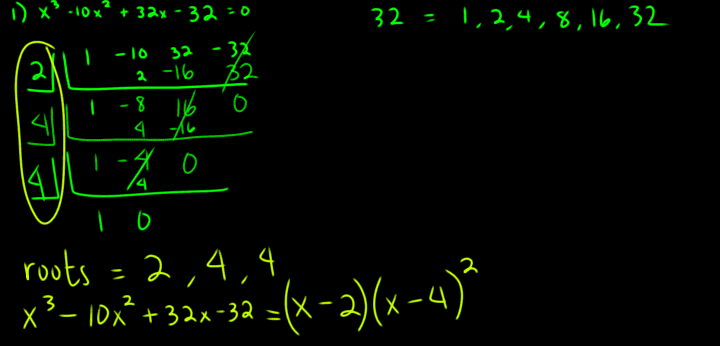 1) x³ -10x² + 32x - 32 = 0
32 = 1, 2, 4, 8, 16, 32
2 | 1 -10 32 -32
2 -16 32
4 | 1 -8 16 0
4 -16
4 | 1 -4 0
4
1 0
roots = 2, 4, 4
x³ - 10x² + 32x - 32 = (x - 2)(x - 4)²